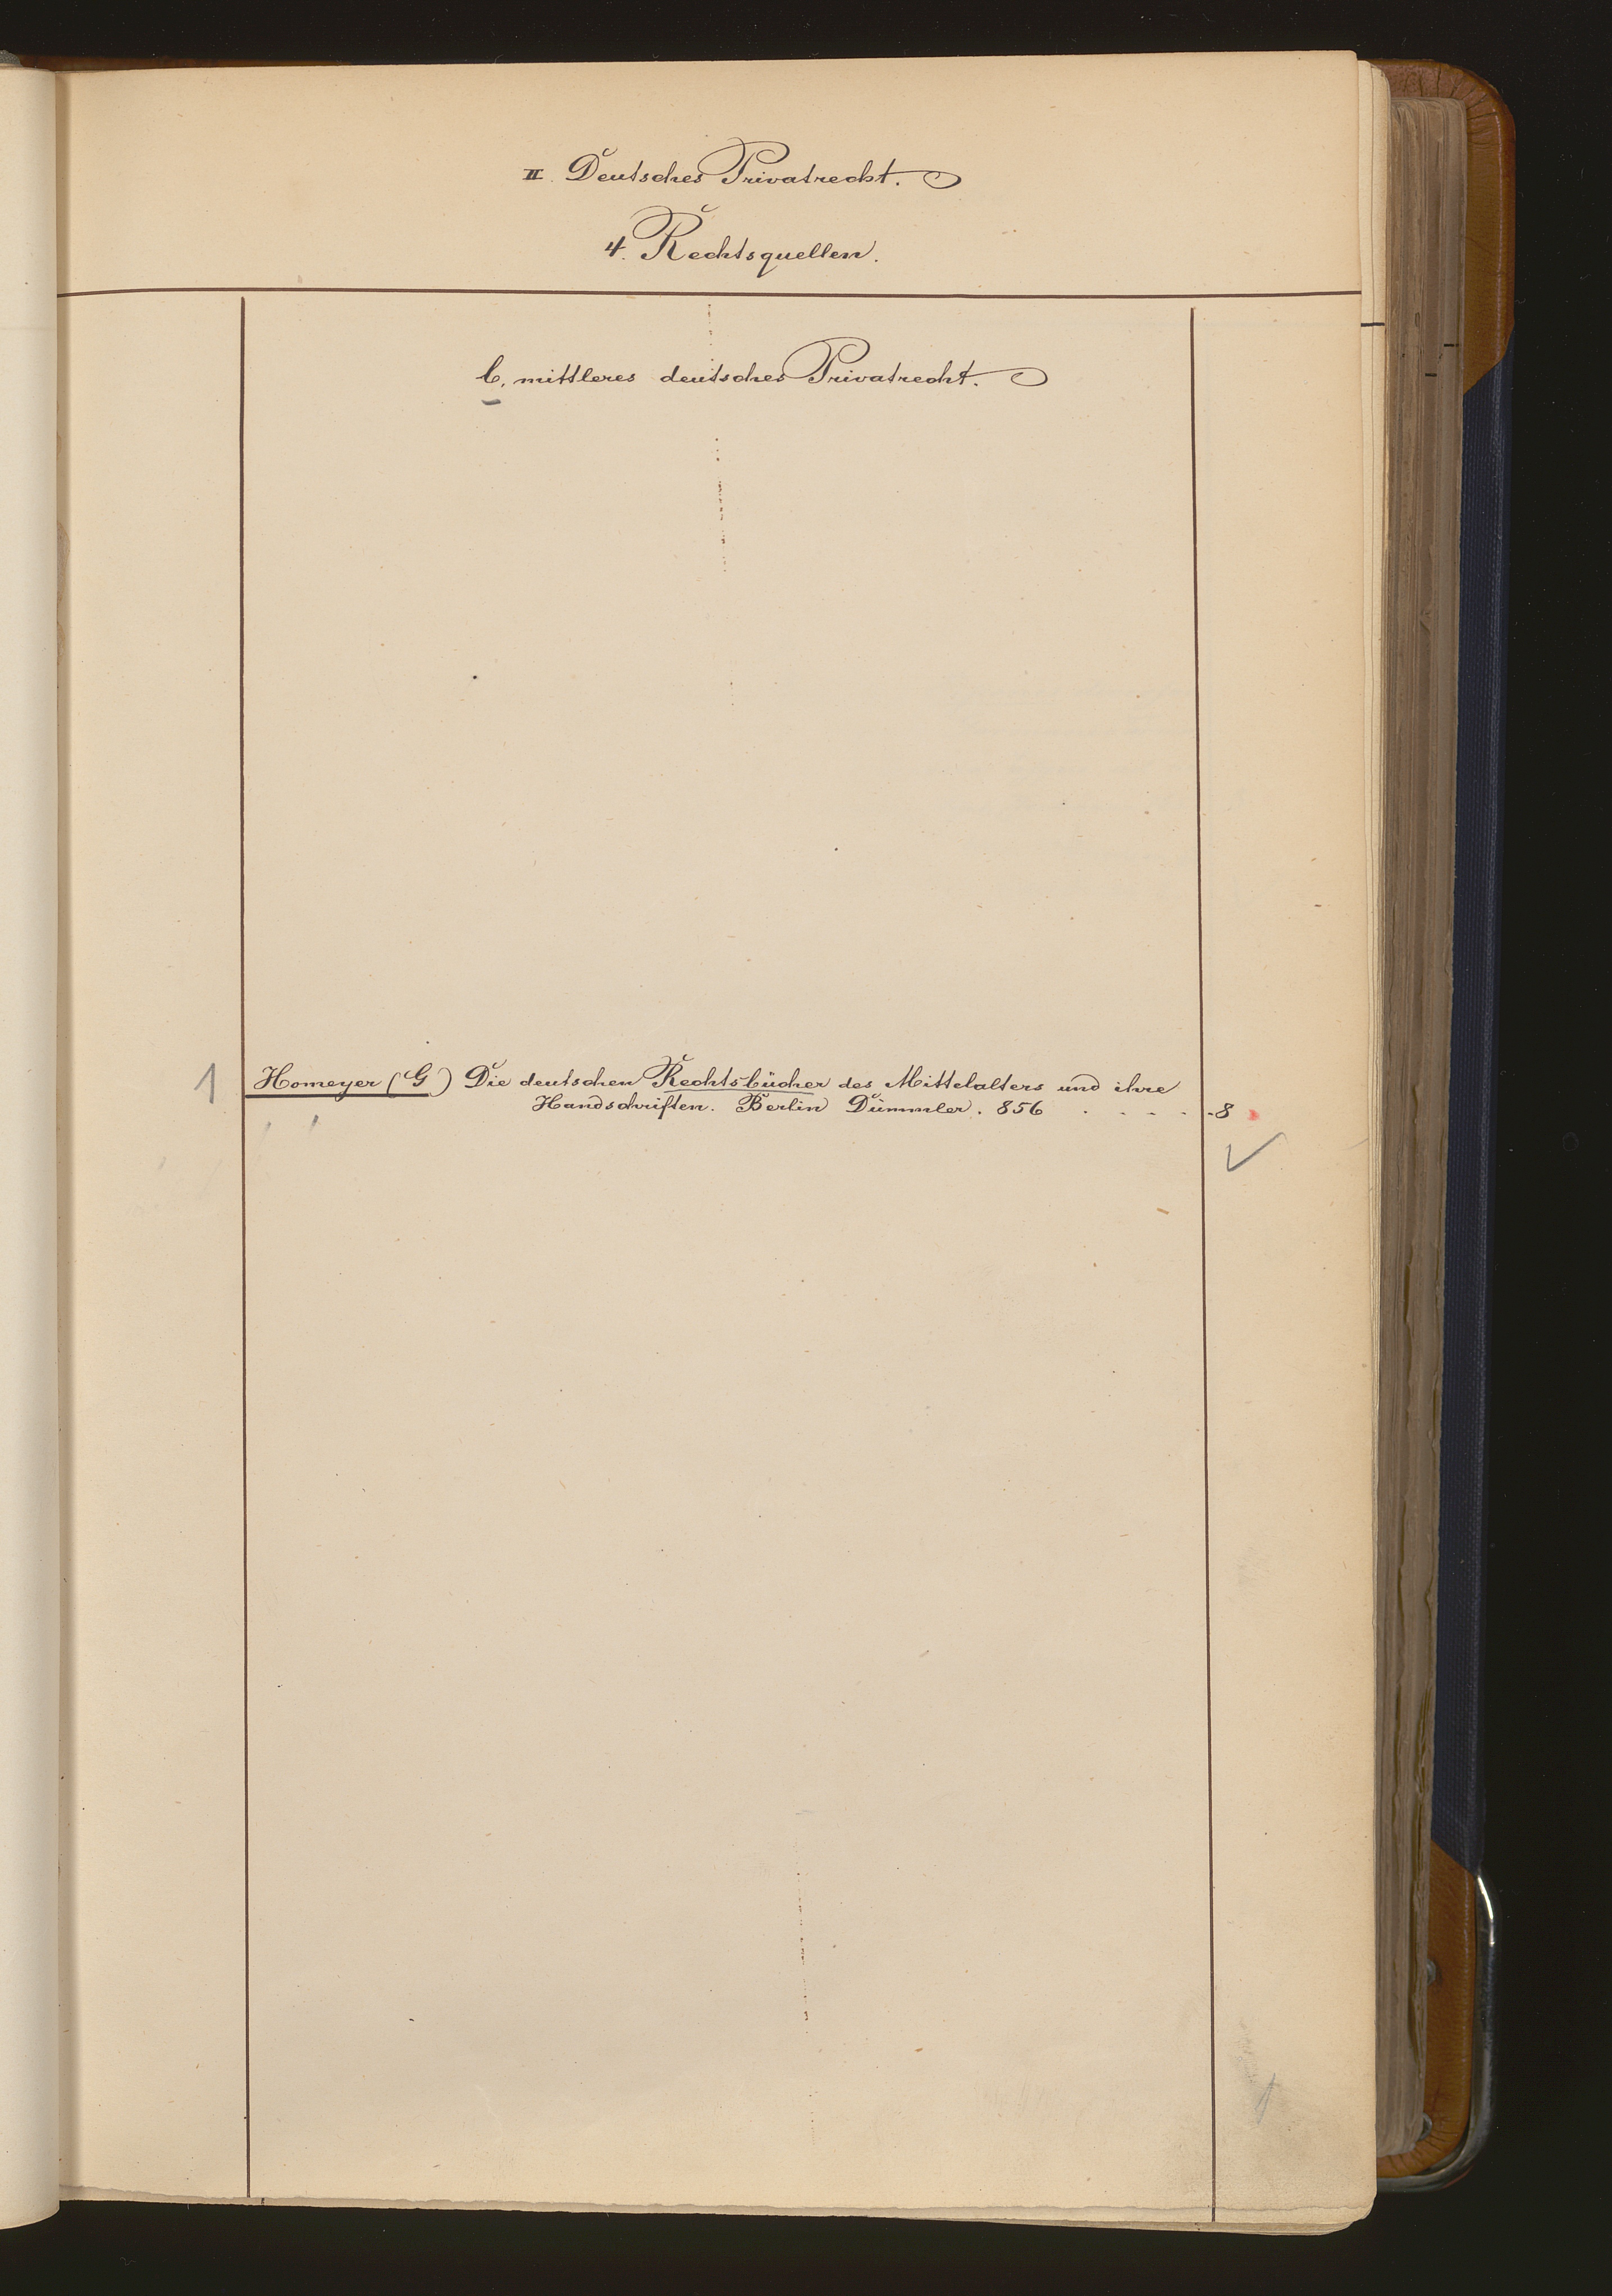 II. Deutsches Privatrecht.
4. Rechtsquellen.
b. mittleres deutsches Privatrecht.
1 Homeyer (G) Die deutschen Rechtsbücher des Mittelalters und ihre
Handschriften. Berlin Dümmler. 856 . . . . . 8